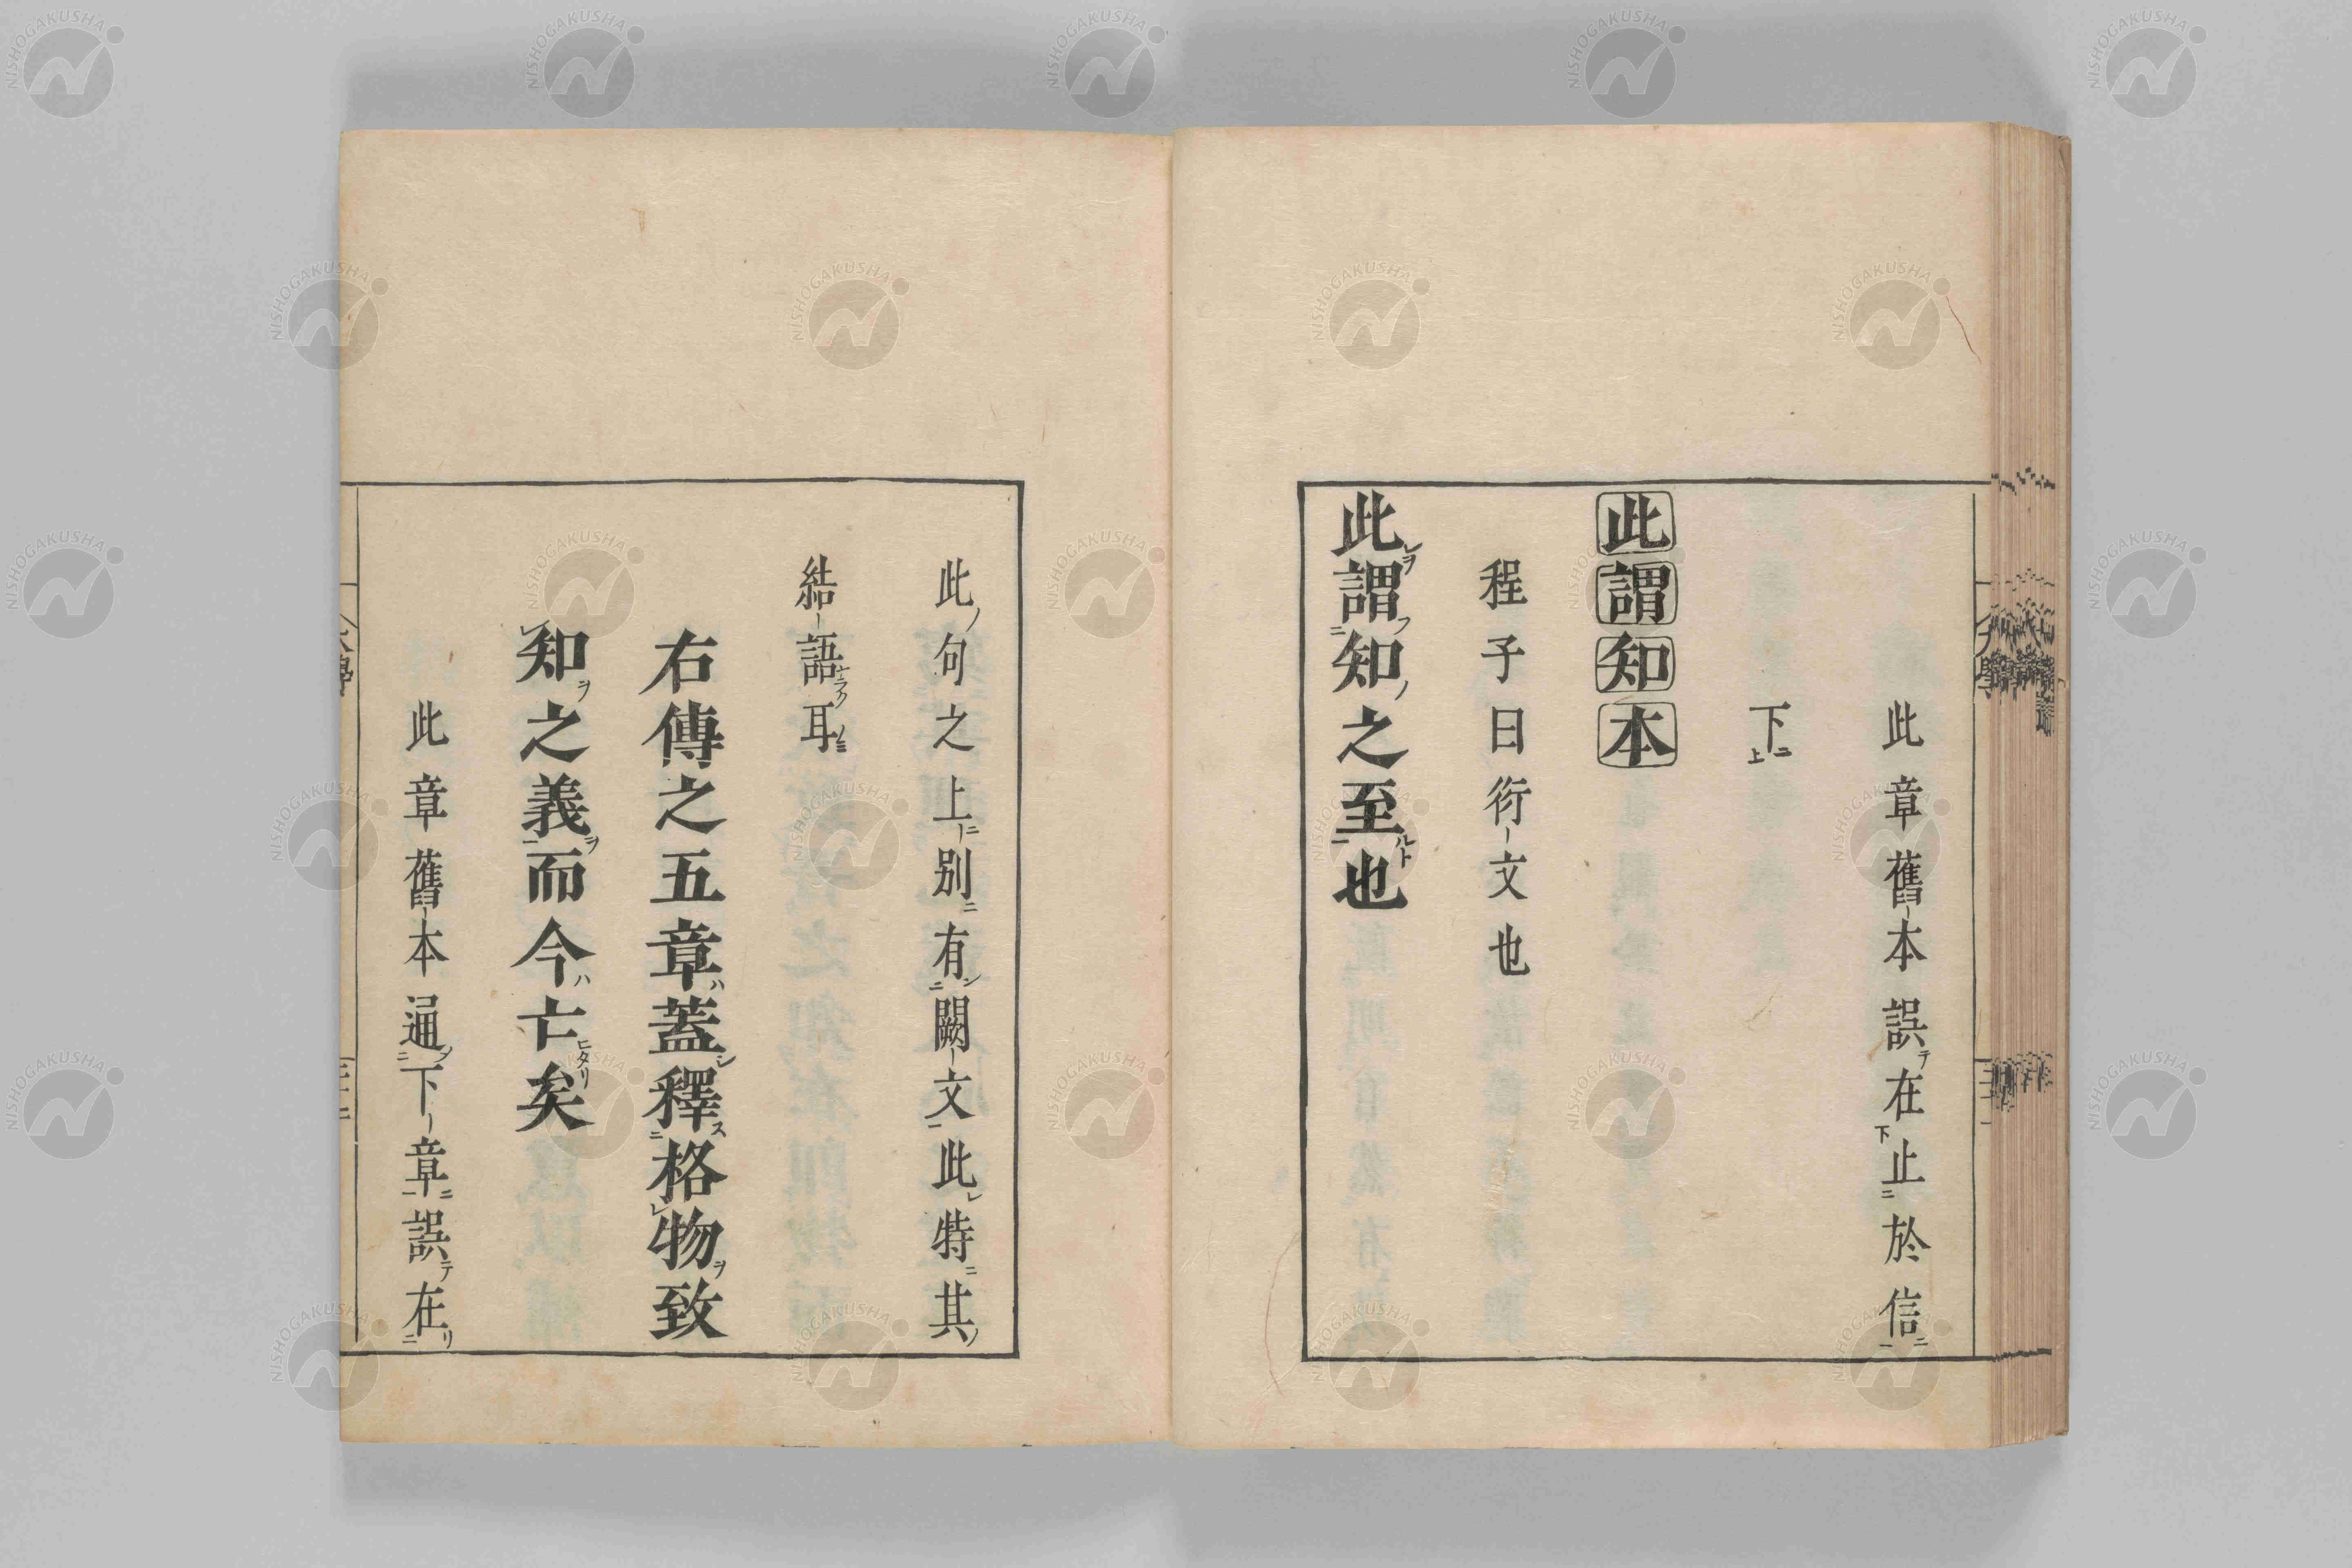 此章舊本誤在止於信
下
此謂知本
程子曰衍文也
此謂知之至也
此句之上別有闕文此特其
結語耳
右傳之五章蓋釋格物致
知之義而今亡矣
此章舊本通下章誤在